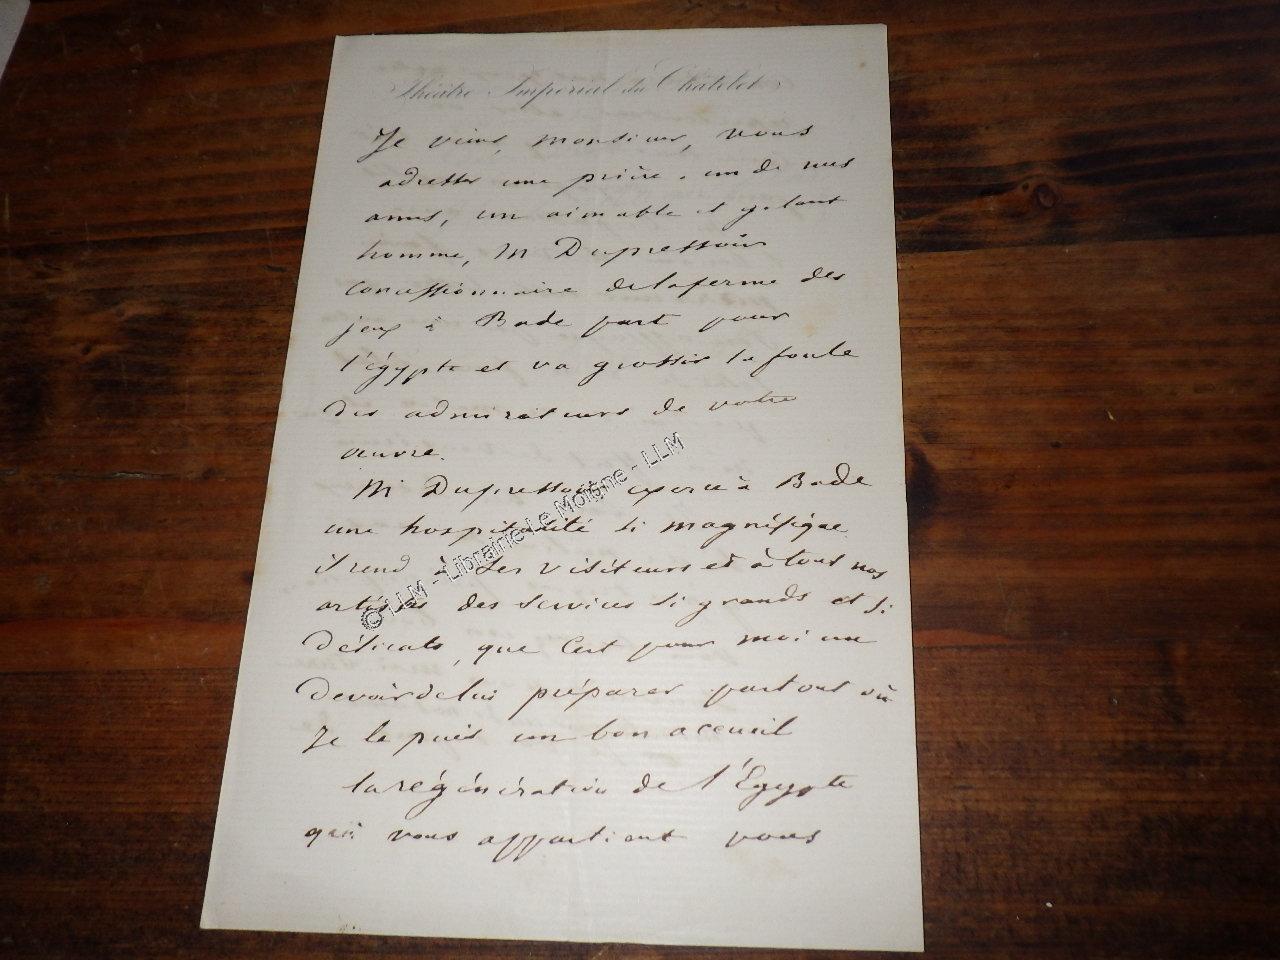 Théâtre Impérial du Châtelet
Je viens, monsieur, vous
adresser une prière. un de mes
amis, un aimable et galant
homme, M Dupressoir
concessionnaire de la ferme des
jeux à Bade part pour
l'égypte et va grossir la foule
des admirateurs de votre
œuvre.
M Dupressoir exerce à Bade
une hospitalité si magnifique
il rend à ses visiteurs et à tous nos
artistes des services si grands et si
délicats, que c'est pour moi un
devoir de lui préparer partout où
je le puis un bon accueil
la régénération de l'Egypte
qui vous appartient vous
© LLM - Librairie Le Moigne - LLM